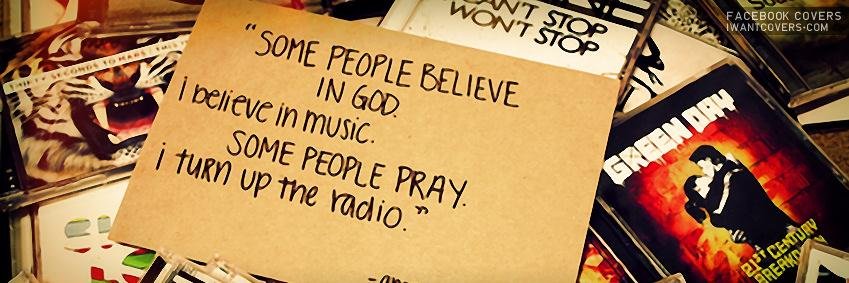 FACEBOOK COVERS
IWANTCOVERS.COM
CAN'T STOP
WON'T STOP
"SOME PEOPLE BELIEVE
IN GOD.
i believe in music.
SOME PEOPLE PRAY.
i TURN UP the radio."
THIRTY SECONDO TO MARS THIS IS
GREEN DAY
21ST CENTURY
BREAKDOWN